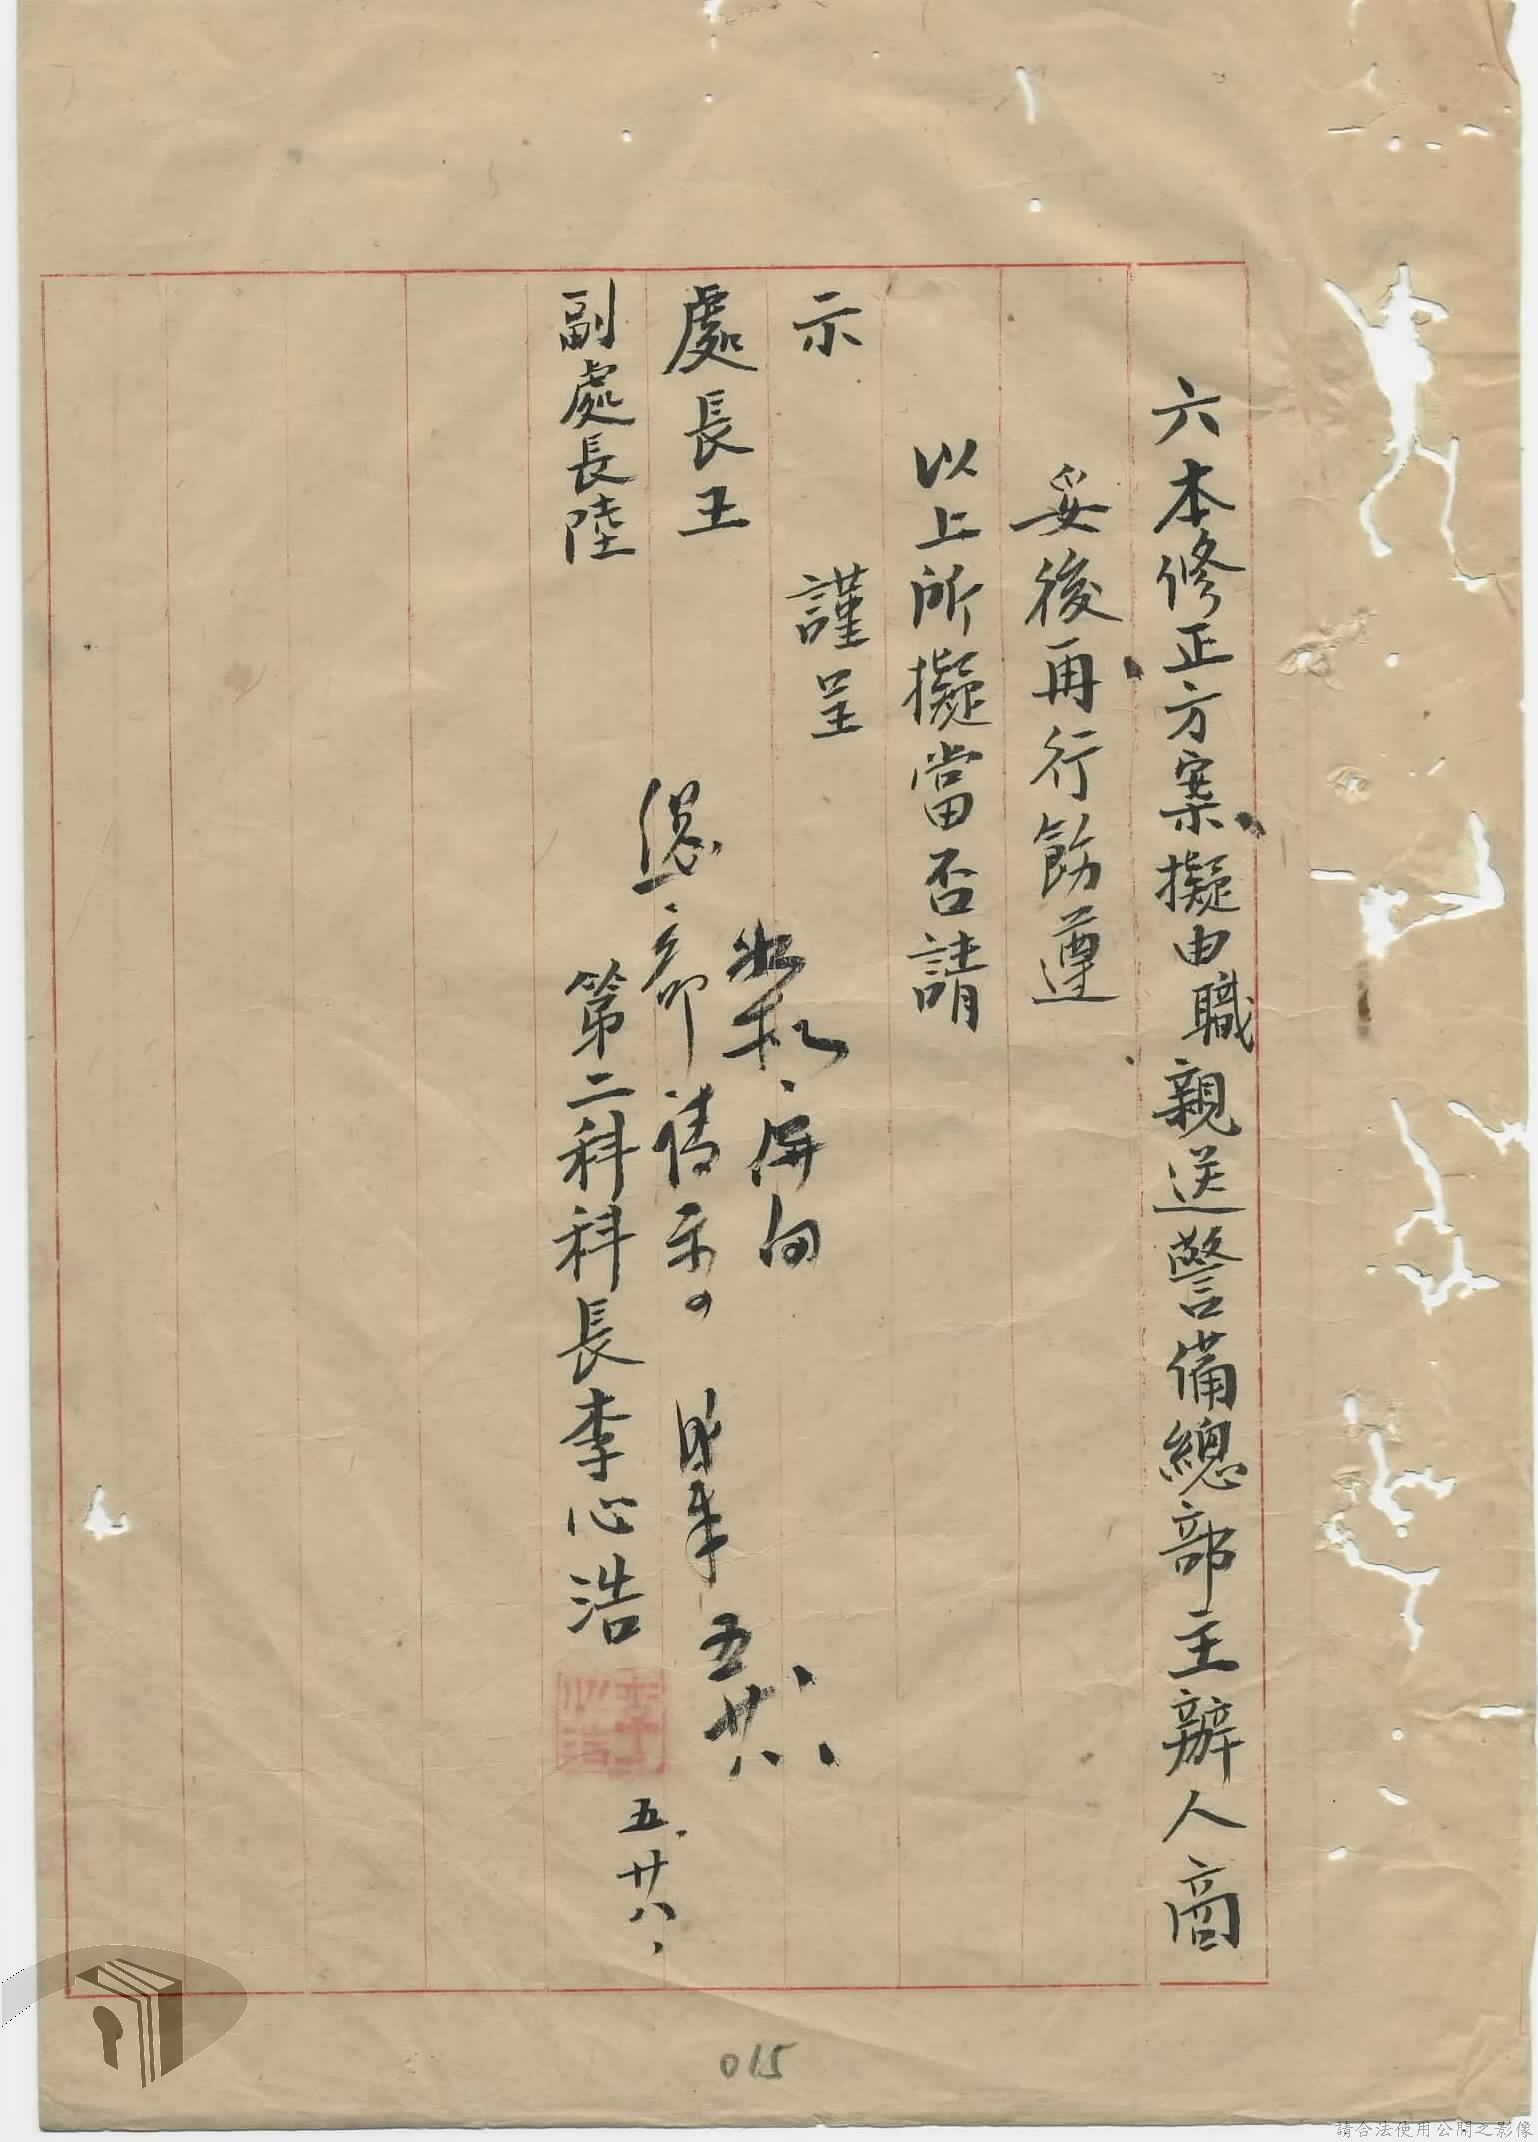 六本修正方案擬由職親送警備總部主辦人商
妥後再行飭遵
以上所擬當否請
示
謹呈
處長王
副處長陸
如擬、併向
總部請示。
五廿八、
第二科科長李心浩
五.廿八、
015
請合法使用公開之影像